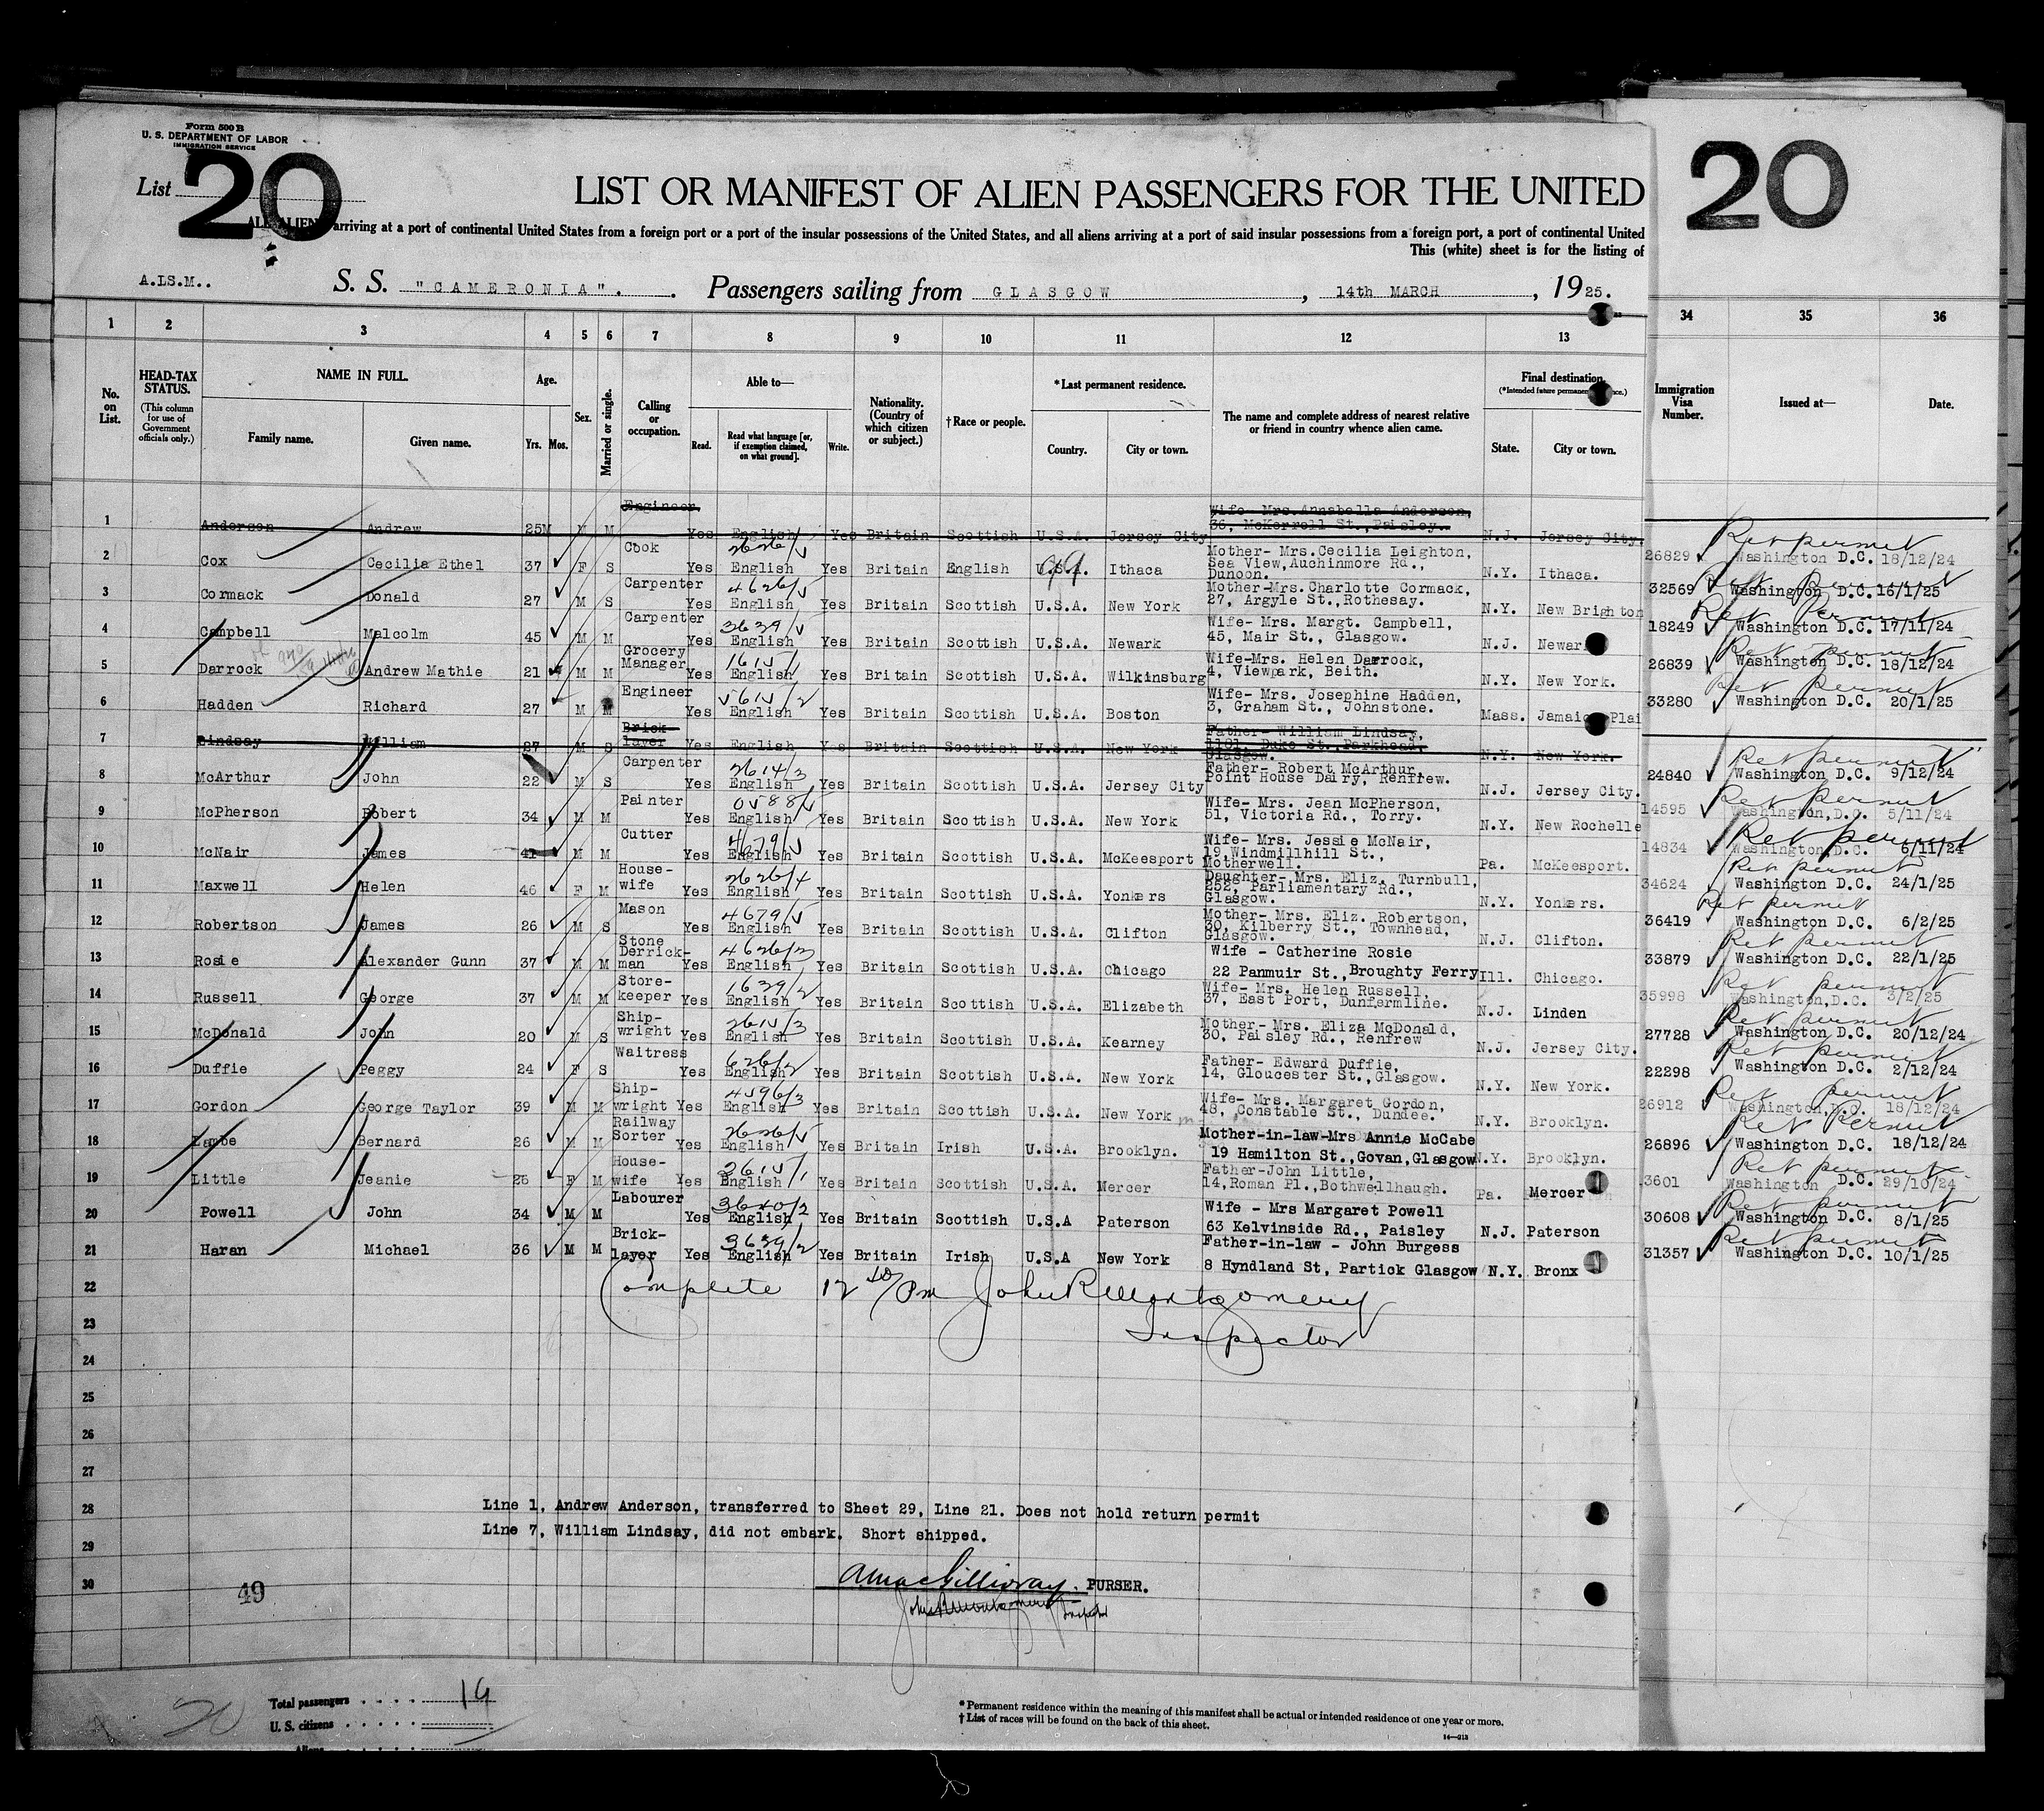 Form 500 B
U. S. DEPARTMENT OF LABOR
IMMIGRATION SERVICE
List 20
20
LIST OR MANIFEST OF ALIEN PASSENGERS FOR THE UNITED
ALL ALIENS arriving at a port of continental United States from a foreign port or a port of the insular possessions of the United States, and all aliens arriving at a port of said insular possessions from a foreign port, a port of continental United
This (white) sheet is for the listing of
A.IS.M.. S. S. "CAMERONIA". Passengers sailing from GLASGOW, 14th MARCH, 1925.
1 2 3 4 5 6 7 8 9 10 11 12 13 34 35 36
No. on List.
HEAD-TAX STATUS.
(This column for use of Government officials only.)
NAME IN FULL.
Family name. Given name.
Age.
Yrs. Mos.
Sex.
Married or single.
Calling or occupation.
Able to—
Read. Read what language [or, if exemption claimed, on what ground]. Write.
Nationality. (Country of which citizen or subject.)
†Race or people.
*Last permanent residence.
Country. City or town.
The name and complete address of nearest relative or friend in country whence alien came.
Final destination.
State. City or town.
Immigration Visa Number.
Issued at—
Date.
1 Anderson Andrew 25 M M Engineer Yes English Yes Britain Scottish U.S.A. Jersey City Wife- Mrs. Annabella Anderson, 36, McKerrell St., Paisley. N.J. Jersey City.
2 Cox Cecilia Ethel 37 F S Cook Yes English Yes Britain English U.S.A. Ithaca Mother- Mrs.Cecilia Leighton, Sea View,Auchinmore Rd., Dunoon. N.Y. Ithaca. 26829 Ret permit Washington D.C. 18/12/24
3 Cormack Donald 27 M S Carpenter Yes English Yes Britain Scottish U.S.A. New York Mother-Mrs.Charlotte Cormack, 27, Argyle St.,Rothesay. N.Y. New Brighton 32569 Ret permit Washington D.C. 16/1/25
4 Campbell Malcolm 45 M M Carpenter Yes English Yes Britain Scottish U.S.A. Newark Wife- Mrs. Margt. Campbell, 45, Mair St., Glasgow. N.J. Newar 18249 Ret Permit Washington D.C. 17/11/24
5 Darrock Andrew Mathie 21 M M Grocery Manager Yes English Yes Britain Scottish U.S.A. Wilkinsburg Wife-Mrs. Helen Darrock, 4, Viewpark, Beith. N.Y. New York. 26839 Ret permit Washington D.C. 18/12/24
6 Hadden Richard 27 M M Engineer Yes English Yes Britain Scottish U.S.A. Boston Wife- Mrs. Josephine Hadden, 3, Graham St., Johnstone. Mass. Jamaica Plai 33280 Ret permit Washington D.C. 20/1/25
7 Lindsay William 27 M S Brick-layer Yes English Yes Britain Scottish U.S.A. New York Father- William Lindsay, 1101, Duke St., Parkhead, Glasgow. N.Y. New York.
8 McArthur John 22 M S Carpenter Yes English Yes Britain Scottish U.S.A. Jersey City Father- Robert McArthur, Point House Dairy, Renfrew. N.J. Jersey City. 24840 Ret permit Washington D.C. 9/12/24
9 McPherson Robert 34 M M Painter Yes English Yes Britain Scottish U.S.A. New York Wife- Mrs. Jean McPherson, 51, Victoria Rd., Torry. N.Y. New Rochelle 14595 Ret permit Washington,D.C. 5/11/24
10 McNair James 41 M M Cutter Yes English Yes Britain Scottish U.S.A. McKeesport Wife- Mrs. Jessie McNair, 19 Windmillhill St., Motherwell. Pa. McKeesport. 14834 Ret permit Washington D.C. 6/11/24
11 Maxwell Helen 46 F M House-wife Yes English Yes Britain Scottish U.S.A. Yonkers Daughter- Mrs. Eliz. Turnbull, 252, Parliamentary Rd., Glasgow. N.Y. Yonkers. 34624 Ret permit Washington D.C. 24/1/25
12 Robertson James 26 M S Mason Yes English Yes Britain Scottish U.S.A. Clifton Mother- Mrs. Eliz. Robertson, 30, Kilberry St., Townhead, Glasgow. N.J. Clifton. 36419 Ret permit Washington D.C. 6/2/25
13 Rosie Alexander Gunn 37 M M Stone Derrick-man Yes English Yes Britain Scottish U.S.A. Chicago Wife - Catherine Rosie 22 Panmuir St.,Broughty Ferry Ill. Chicago. 33879 Ret permit Washington D.C. 22/1/25
14 Russell George 37 M M Store-keeper Yes English Yes Britain Scottish U.S.A. Elizabeth Wife- Mrs. Helen Russell, 37, East Port, Dunfermline. N.J. Linden 35998 Ret permit Washington,D.C. 3/2/25
15 McDonald John 20 M S Ship-wright Yes English Yes Britain Scottish U.S.A. Kearney Mother- Mrs. Eliza McDonald, 30, Paisley Rd., Renfrew N.J. Jersey City. 27728 Ret permit Washington D.C. 20/12/24
16 Duffie Peggy 24 F S Waitress Yes English Yes Britain Scottish U.S.A. New York Father- Edward Duffie, 14, Gloucester St.,Glasgow. N.Y. New York. 22298 Ret permit Washington D.C. 2/12/24
17 Gordon George Taylor 39 M M Ship-wright Yes English Yes Britain Scottish U.S.A. New York Wife- Mrs. Margaret Gordon, 48, Constable St., Dundee. N.Y. Brooklyn. 26912 Ret permit Washington,D.C. 18/12/24
18 Lambe Bernard 26 M M Railway Sorter Yes English Yes Britain Irish U.S.A. Brooklyn. Mother-in-law-Mrs Annie McCabe 19 Hamilton St.,Govan,Glasgow N.Y. Brooklyn. 26896 Ret Permit Washington D.C. 18/12/24
19 Little Jeanie 25 F M House-wife Yes English Yes Britain Scottish U.S.A. Mercer Father-John Little, 14,Roman Pl.,Bothwellhaugh. Pa. Mercer 3601 Ret permit Washington D.C. 29/10/24
20 Powell John 34 M M Labourer Yes English Yes Britain Scottish U.S.A Paterson Wife - Mrs Margaret Powell 63 Kelvinside Rd., Paisley N.J. Paterson 30608 Ret permit Washington D.C. 8/1/25
21 Haran Michael 36 M M Brick-layer Yes English Yes Britain Irish U.S.A New York Father-in-law - John Burgess 8 Hyndland St, Partick Glasgow N.Y. Bronx 31357 Ret permit Washington D.C. 10/1/25
22 Complete 12 Pm John R Montgomery
23 Inspector
24
25
26
27
28 Line 1, Andrew Anderson, transferred to Sheet 29, Line 21. Does not hold return permit
Line 7, William Lindsay, did not embark. Short shipped.
29
30 49 A MacGillivray. PURSER.
Total passengers 19
20
U. S. citizens
Aliens
* Permanent residence within the meaning of this manifest shall be actual or intended residence of one year or more.
† List of races will be found on the back of this sheet.
14—213